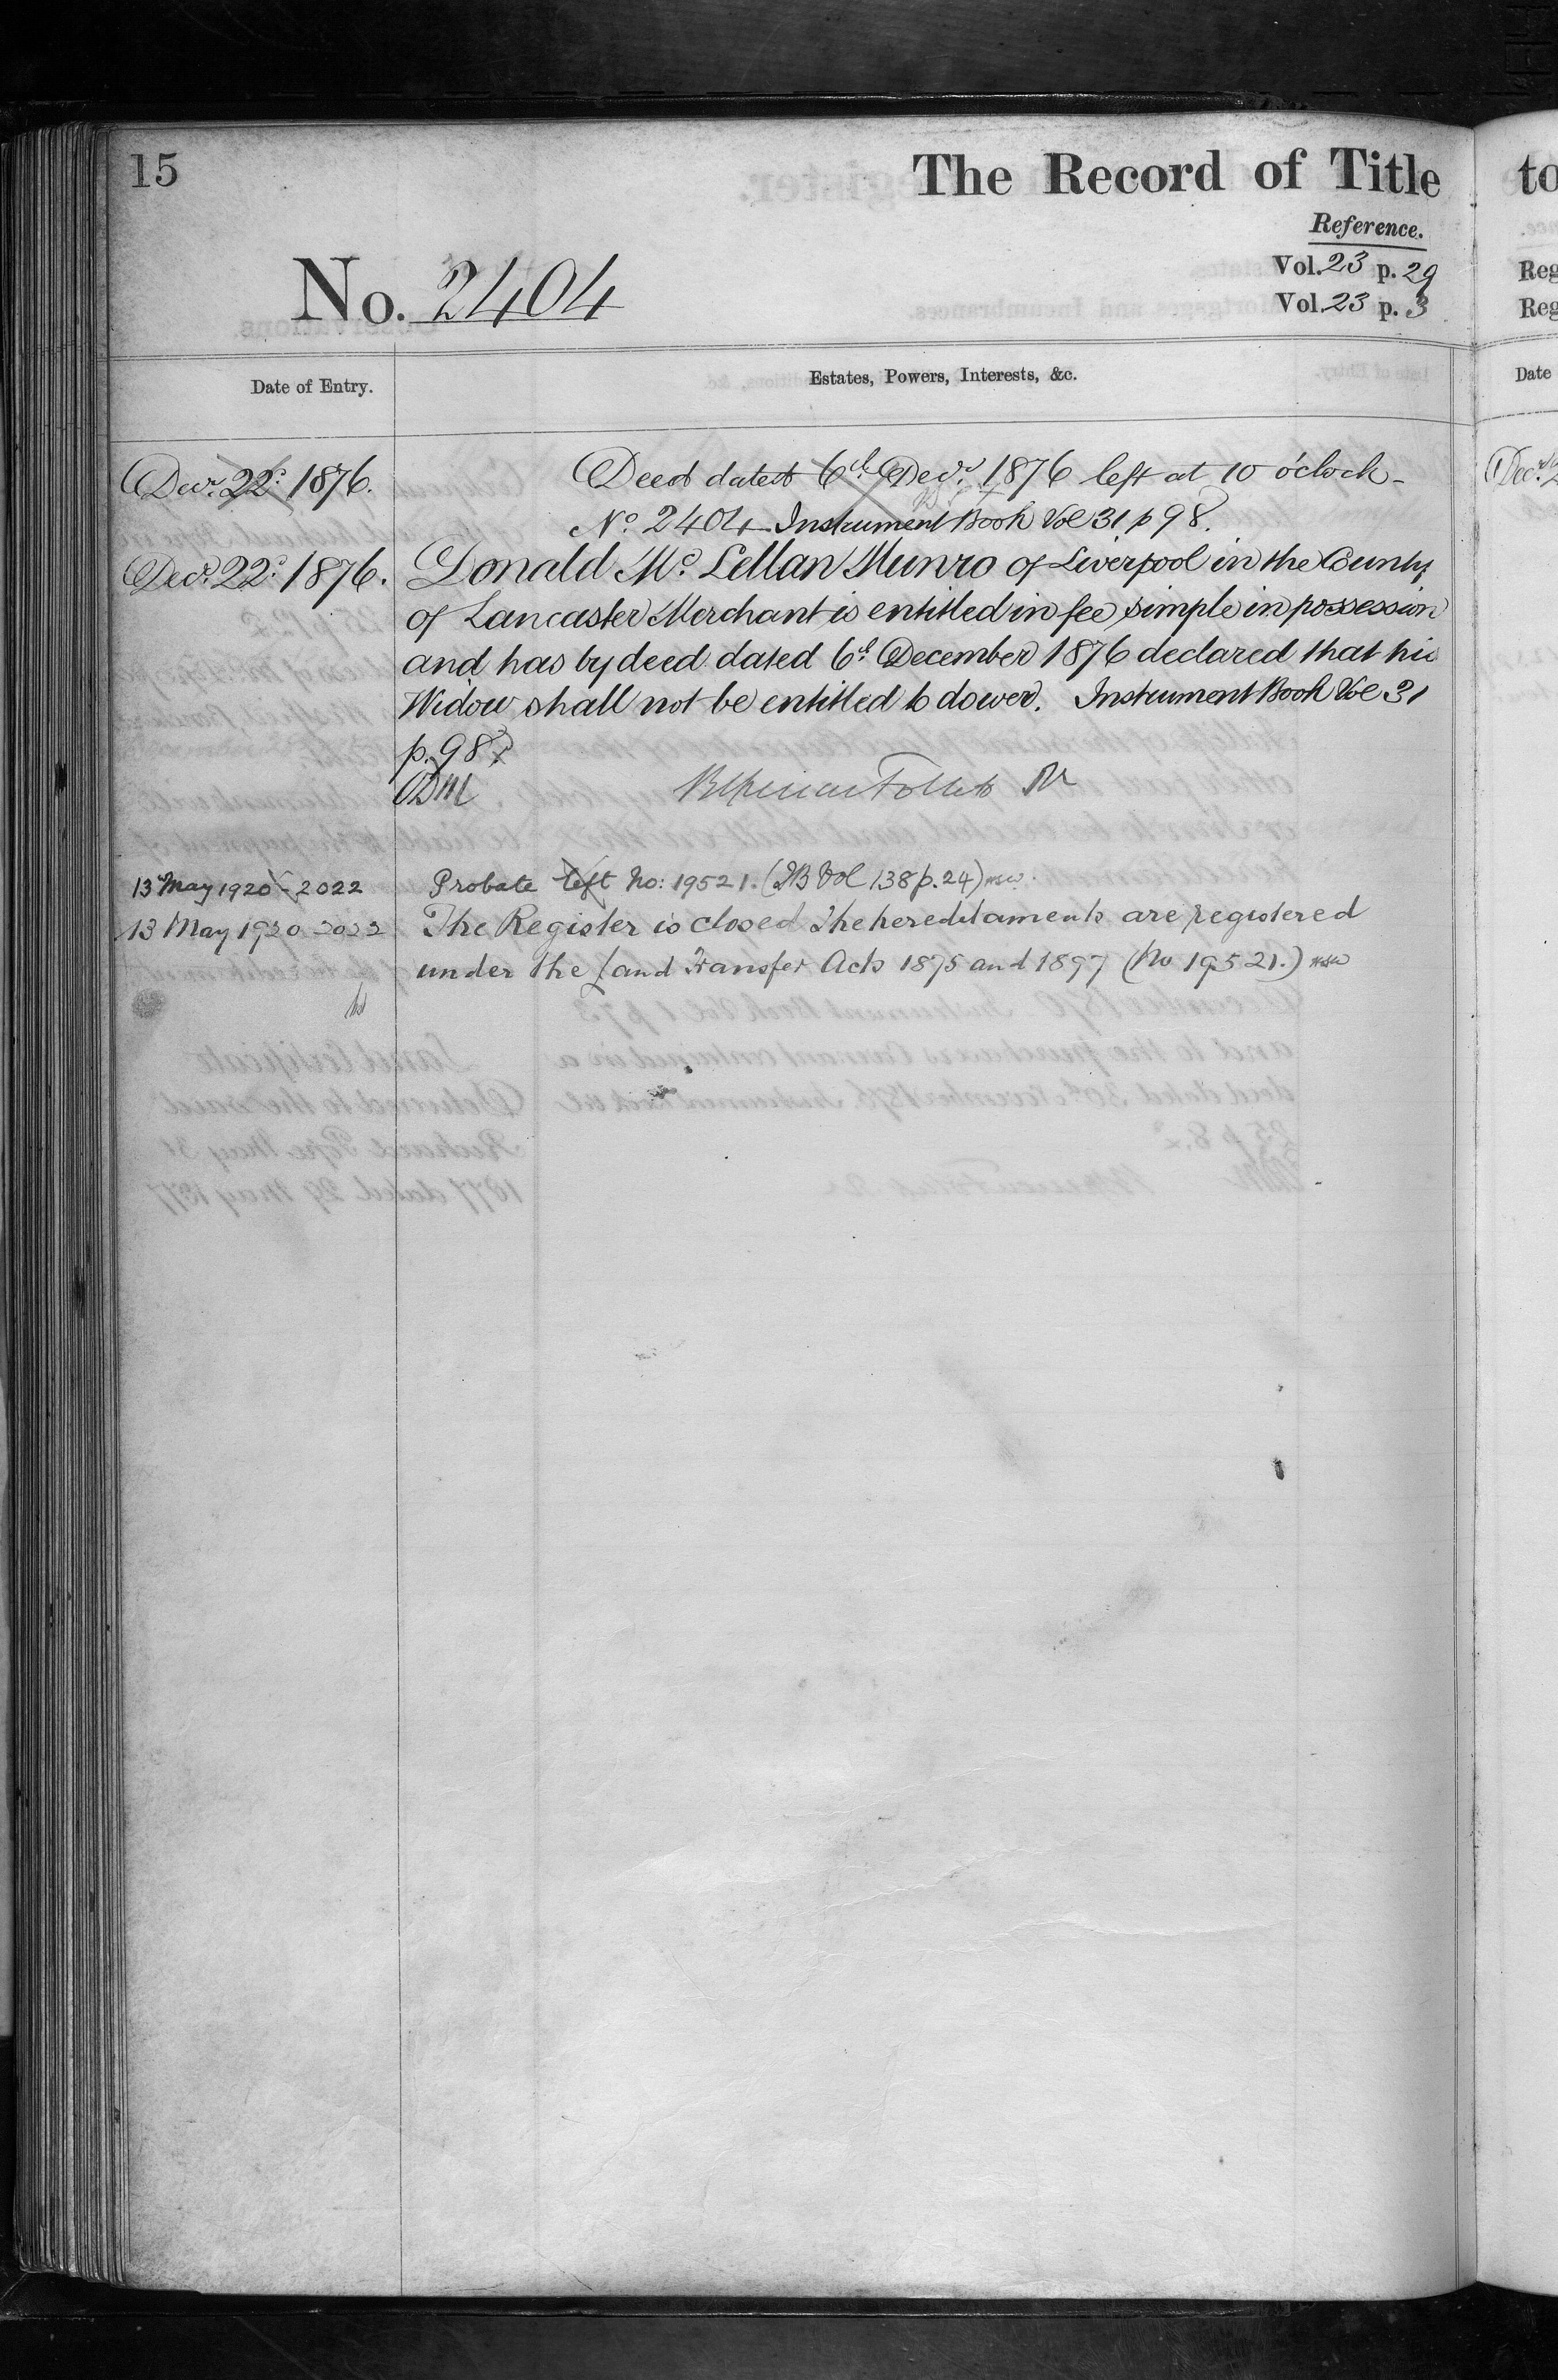 15
The Record of Title
to
Reference.
No. 2404
Vol. 23 p. 29
Reg
Vol. 23 p. 3
Reg
Date of Entry.
Estates, Powers, Interests, &c.
Date
Decr. 22d 1876.
Deed dated 6th Decr. 1876 left at 10 o'clock -
Decr.
No 2404 Instrument Book Vol 31 p 98.
Decr. 22d 1876.
Donald Mc Lellan Munro of Liverpool in the County
of Lancaster Merchant is entitled in fee simple in possession
and has by deed dated 6th December 1876 declared that his
Widow shall not be entitled to dower. Instrument Book Vol 31
p. 98
Follett
13 May 1920 - 2022
Probate left No: 19521. (IB Vol 138 p. 24)
13 May 1920 2022
The Register is closed The hereditaments are registered
under the Land Transfer Acts 1875 and 1897 (No 19521.)